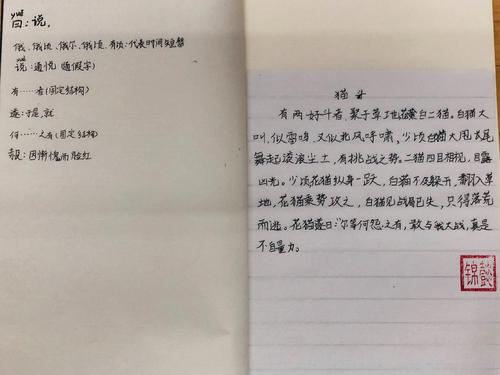 yuē
曰:说。
俄、俄顷、俄尔、俄顷、有顷:代表时间短暂
yuè
说:通悦(通假字)
有……者(固定结构)
遂:于是,就
何……之有(固定结构)
赧:因惭愧而脸红
猫斗
有两好斗者,聚于草地,花白二猫。白猫大
叫,似雷鸣,又似北风呼啸,少顷白猫大甩其尾
舞起滚滚尘土,有挑战之势。二猫四目相视,目露
凶光。少顷花猫纵身一跃,白猫不及躲开,翻入草
地,花猫乘势攻之,白猫见战局已失,只得落荒
而逃。花猫遂曰:“尔等何怨之有,敢与我大战,真是
不自量力。
锦懿